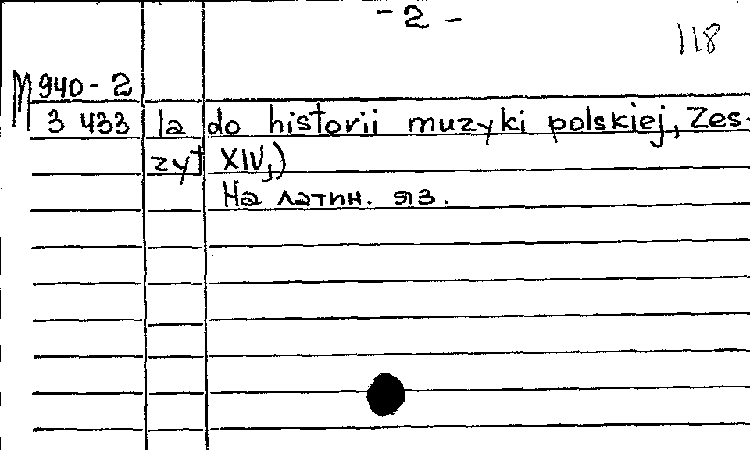 - 2 -
118
М 940-2
3 433 la do historii muzyki polskiej, Zes-
zyt XIV,)
На латин. яз.